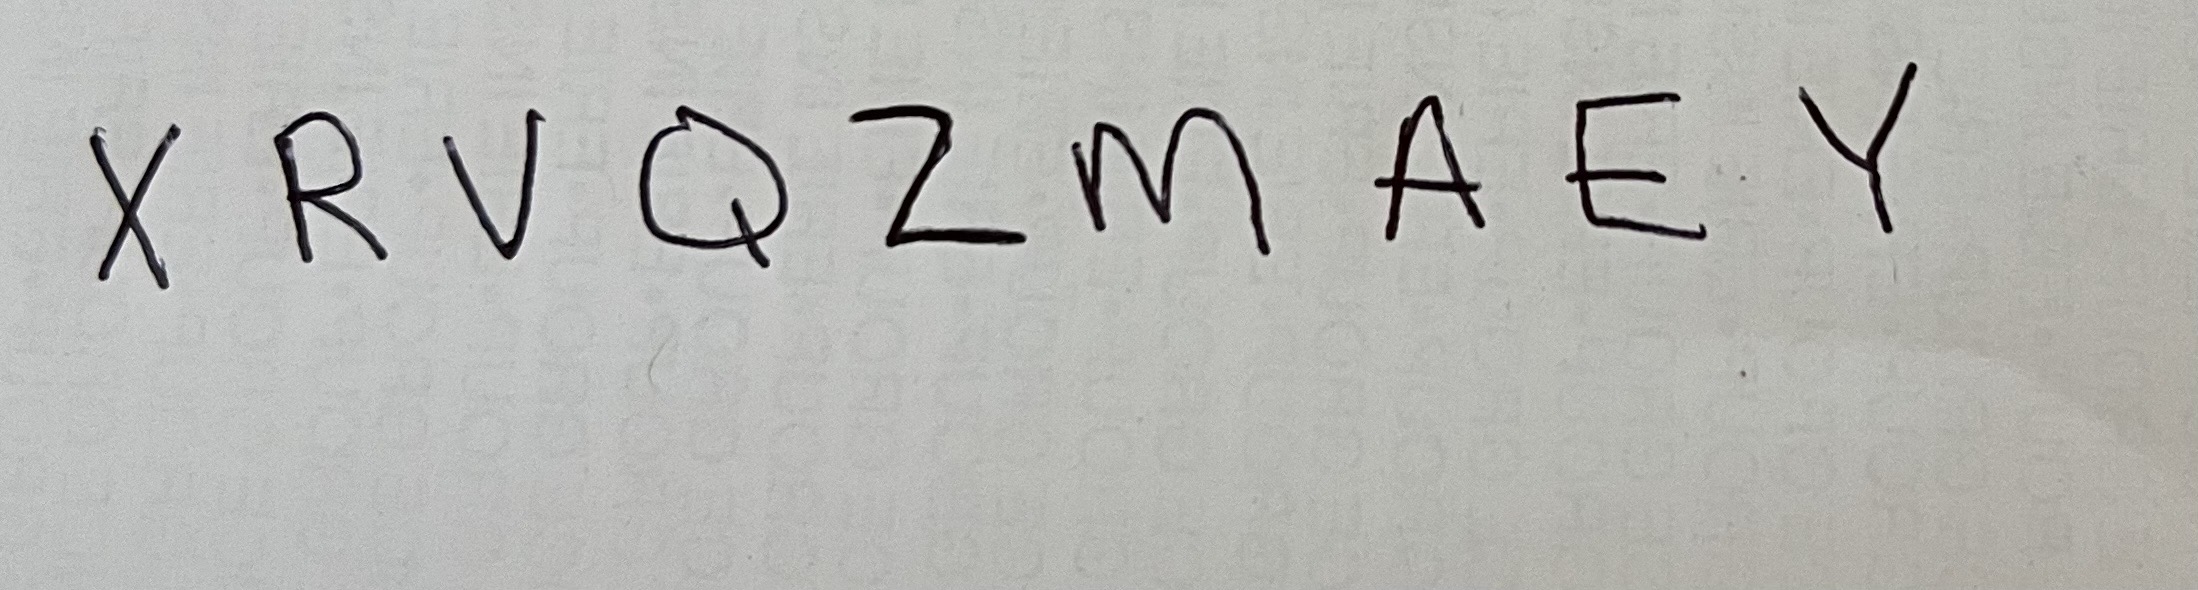 X R V Q Z M A E Y